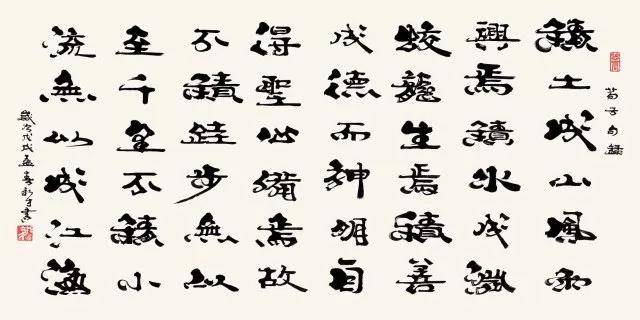 荀子句錄
積土成山風雨
興焉積水成淵
蛟龍生焉積善
成德而神明自
得聖心備焉故
不積跬步無以
至千里不積小
流無以成江海
歲次戊戌孟春書